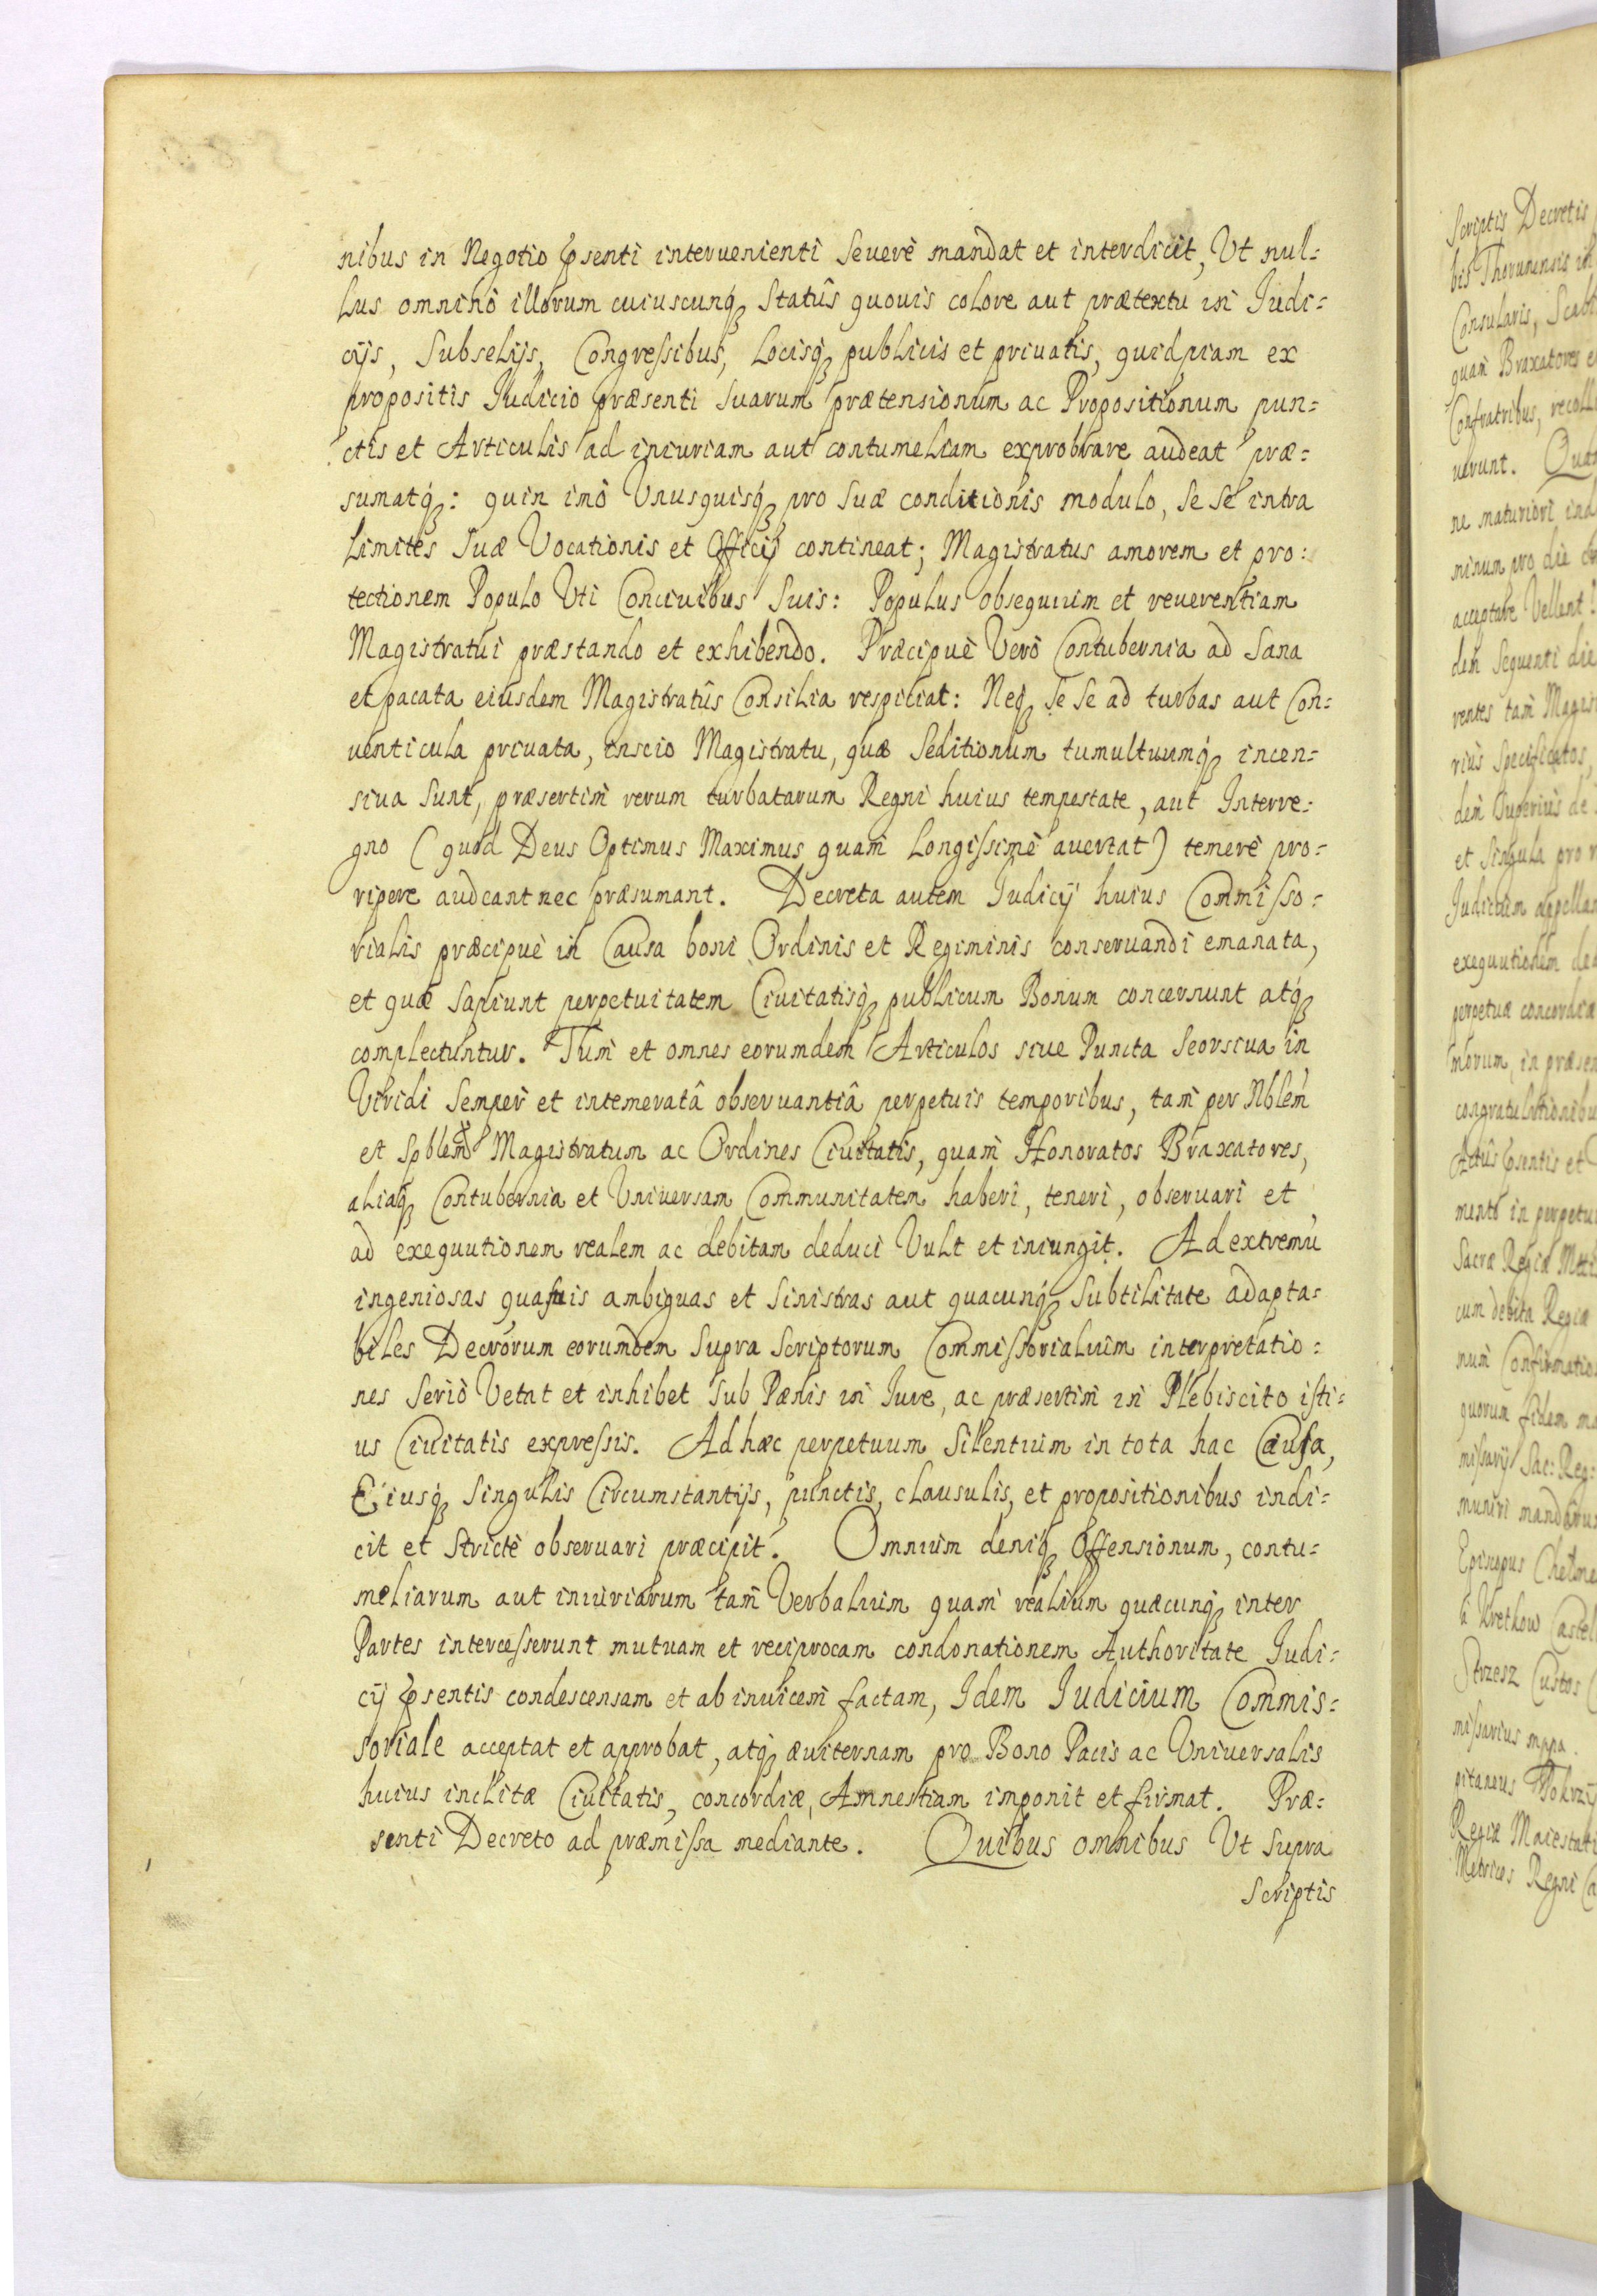 nibus in Negotio p̃senti interuenienti Seuerè mandat et interdicit, Vt nul=
lus omninò illorum cuiuscunqꝫ Statûs quouis colore aut prætextu in Judi=
cijs, Subselijs, Congressibus, Locisqꝫ publicis et priuatis, quidpiam ex
propositis Judicio præsenti Suarum prætensionum ac Propositionum pun=
ctis et Articulis ad iniuriam aut contumeliam exprobrare audeat præ=
sumatqꝫ: quin imò Vnusquisqꝫ pro Suæ conditionis modulo, Se Se intra
Limites Suæ Vocationis et Officij contineat; Magistratus amorem et pro:
tectionem Populo Vti Conciuibus Suis: Populus obsequium et reuerentiam
Magistratui præstando et exhibendo. Præcipuè Verò Contubernia ad Sana
et pacata eiusdem Magistratûs Consilia respiciat: Neqꝫ Se Se ad turbas aut Con=
uenticula priuata, inscio Magistratu, quæ Seditionum tumultuumqꝫ incen=
siua Sunt, præsertim rerum turbatarum Regni huius tempestate, aut Interre=
gno (quod Deus Optimus Maximus quam Longissimè auertat) temerè pro=
ripere audeant nec præsumant. Decreta autem Judicij huius Commisso=
rialis præcipuè in Causa boni Ordinis et Regiminis conseruandi emanata,
et quæ Sapiunt perpetuitatem Ciuitatisqꝫ publicum Bonum concernunt atqꝫ
complectuntur. Tum et omnes eorumdem Articulos siue Puncta Seorsiua in
Viridi Semper et intemeratâ obseruantiâ perpetuis temporibus, tam per Nblem
et Spblem Magistratum ac Ordines Ciuitatis, quam Honoratos Braxatores,
aliaqꝫ Contubernia et Vniuersam Communitatem haberi, teneri, obseruari et
ad exequutionem realem ac debitam deduci Vult et iniungit. Ad extremũ
ingeniosas quasuis ambiguas et Sinistras aut quacunqꝫ Subtilitate adapta=
biles Decrorum eorundem Supra Scriptorum Commissorialium interpretatio=
nes Seriò Vetat et inhibet Sub Pænis in Jure, ac præsertim in Plebiscito isti=
us Ciuitatis expressis. Ad hæc perpetuum Silentium in tota hac Causa,
Eiusqꝫ Singulis Circumstantijs, punctis, clausulis, et propositionibus indi=
cit et Strictè obseruari præcipit. Omnium deniqꝫ Offensionum, contu=
meliarum aut iniuriarum tam Verbalium quam realium quæcunqꝫ inter
Partes intercesserunt mutuam et reciprocam condonationem Authoritate Judi=
cij p̃sentis condescensam et ab inuicem factam, Idem Iudicium Commis=
soriale acceptat et approbat, atqꝫ æuiternam pro Bono Pacis ac Vniuersalis
huius inclitæ Ciuitatis, concordiæ, Amnestiam imponit et firmat. Præ=
senti Decreto ad præmissa mediante. Quibus omnibus Vt Supra
Scriptis
Scriptis Decretis
bis Thorunensis in
Consularis,
quam Braxatores
Confratribus,
uerunt.
ne maturiori
minum pro die
acceptare Vellent
dem Sequenti die
rentes tam
rius Specificatos,
dem Superius de
et Singula pro
Judicium
exequutionem
perpetuæ concordiæ
morum, in
Actûs p̃sentis et
mento in
Sacræ Regiæ
cum debita Regiæ
num
quorum fidem
missarij Sac: Reg:
muniri
Episcopus
à Kretkow
Strzesz Custos
missarius mppa.
pitaneus
Regiæ
Metrices Regni